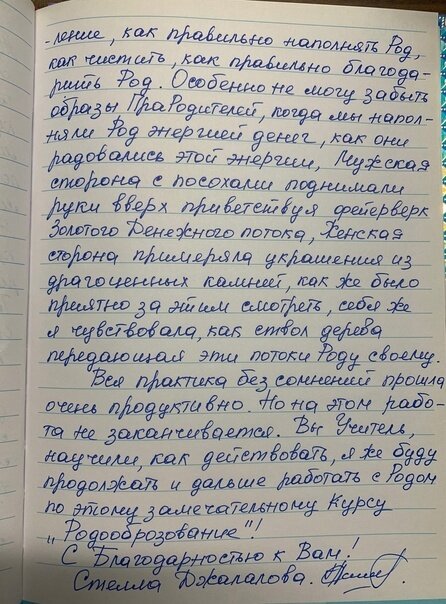 -ление, как правильно наполнять Род,
как чистить, как правильно благода-
рить Род. Особенно не могу забыть
образы ПраРодителей, когда мы напол-
няли Род энергией денег, как они
радовались этой энергии, Мужская
сторона с посохами поднимали
руки вверх приветствуя фейерверк
Золотого Денежного потока, Женская
сторона примеряла украшения из
драгоценных камней, как же было
приятно за этим смотреть, себя же
я чувствовала, как ствол дерева
передающая эти потоки Роду своему.
Вся практика без сомнений прошла
очень продуктивно. Но на этом рабо-
та не заканчивается. Вы Учитель,
научили, как действовать, я же буду
продолжать и дальше работать с Родом
по этому замечательному Курсу
„Родооброзование"!
С Благодарностью к Вам!
Стелла Джалалова.